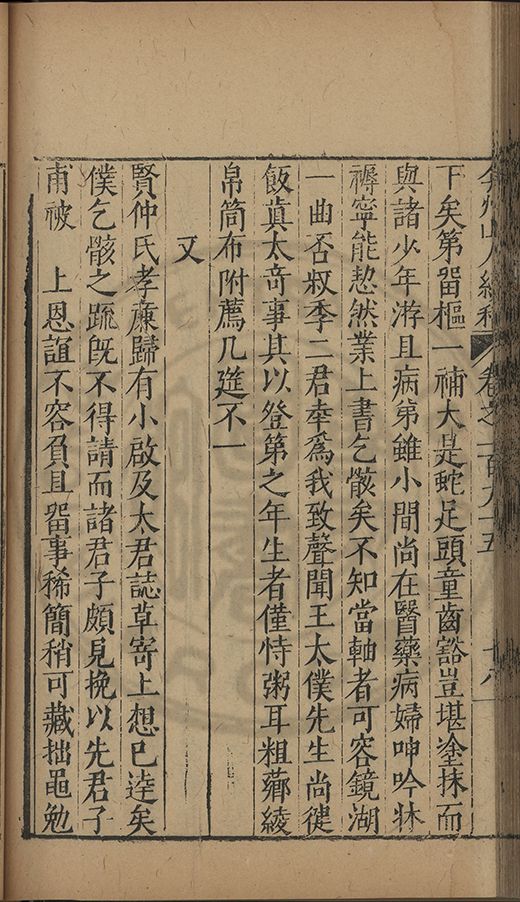 弇州山人續稿 卷之一百九十五 十八
下矣第留樞一補大是蛇足頭童齒豁豈堪塗抹而
與諸少年游且病弟雖小間尚在醫藥病婦呻吟牀
褥寧能恝然業上書乞骸矣不知當軸者可容鏡湖
一曲否叔季二君幸爲我致聲聞王太僕先生尚健
飯眞太奇事其以登第之年生者僅恃粥耳粗薌綾
帛筒布附薦几筵不一
又
賢仲氏孝廉歸有小啟及太君誌草寄上想已達矣
僕乞骸之疏旣不得請而諸君子頗見挽以先君子
甫被 上恩誼不容負且留事稀簡稍可藏拙黽勉